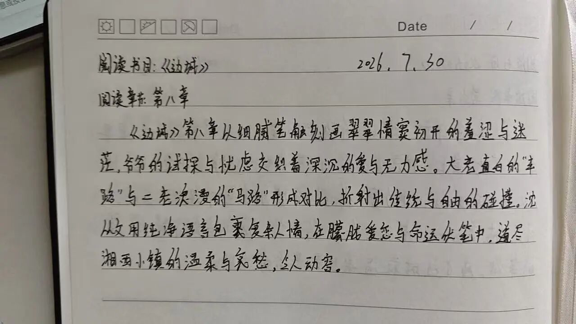 Date / /
阅读书目:《边城》 2026.7.30
阅读章节:第八章
《边城》第八章以细腻笔触刻画翠翠情窦初开的羞涩与迷
茫,爷爷的试探与忧虑交织着深沉的爱与无力感。大老直白的"车
路"与二老浪漫的"马路"形成对比,折射出传统与自由的碰撞。沈
从文用纯净语言包裹复杂人情,在朦胧爱恋与命运伏笔中,道尽
湘西小镇的温柔与哀愁,令人动容。